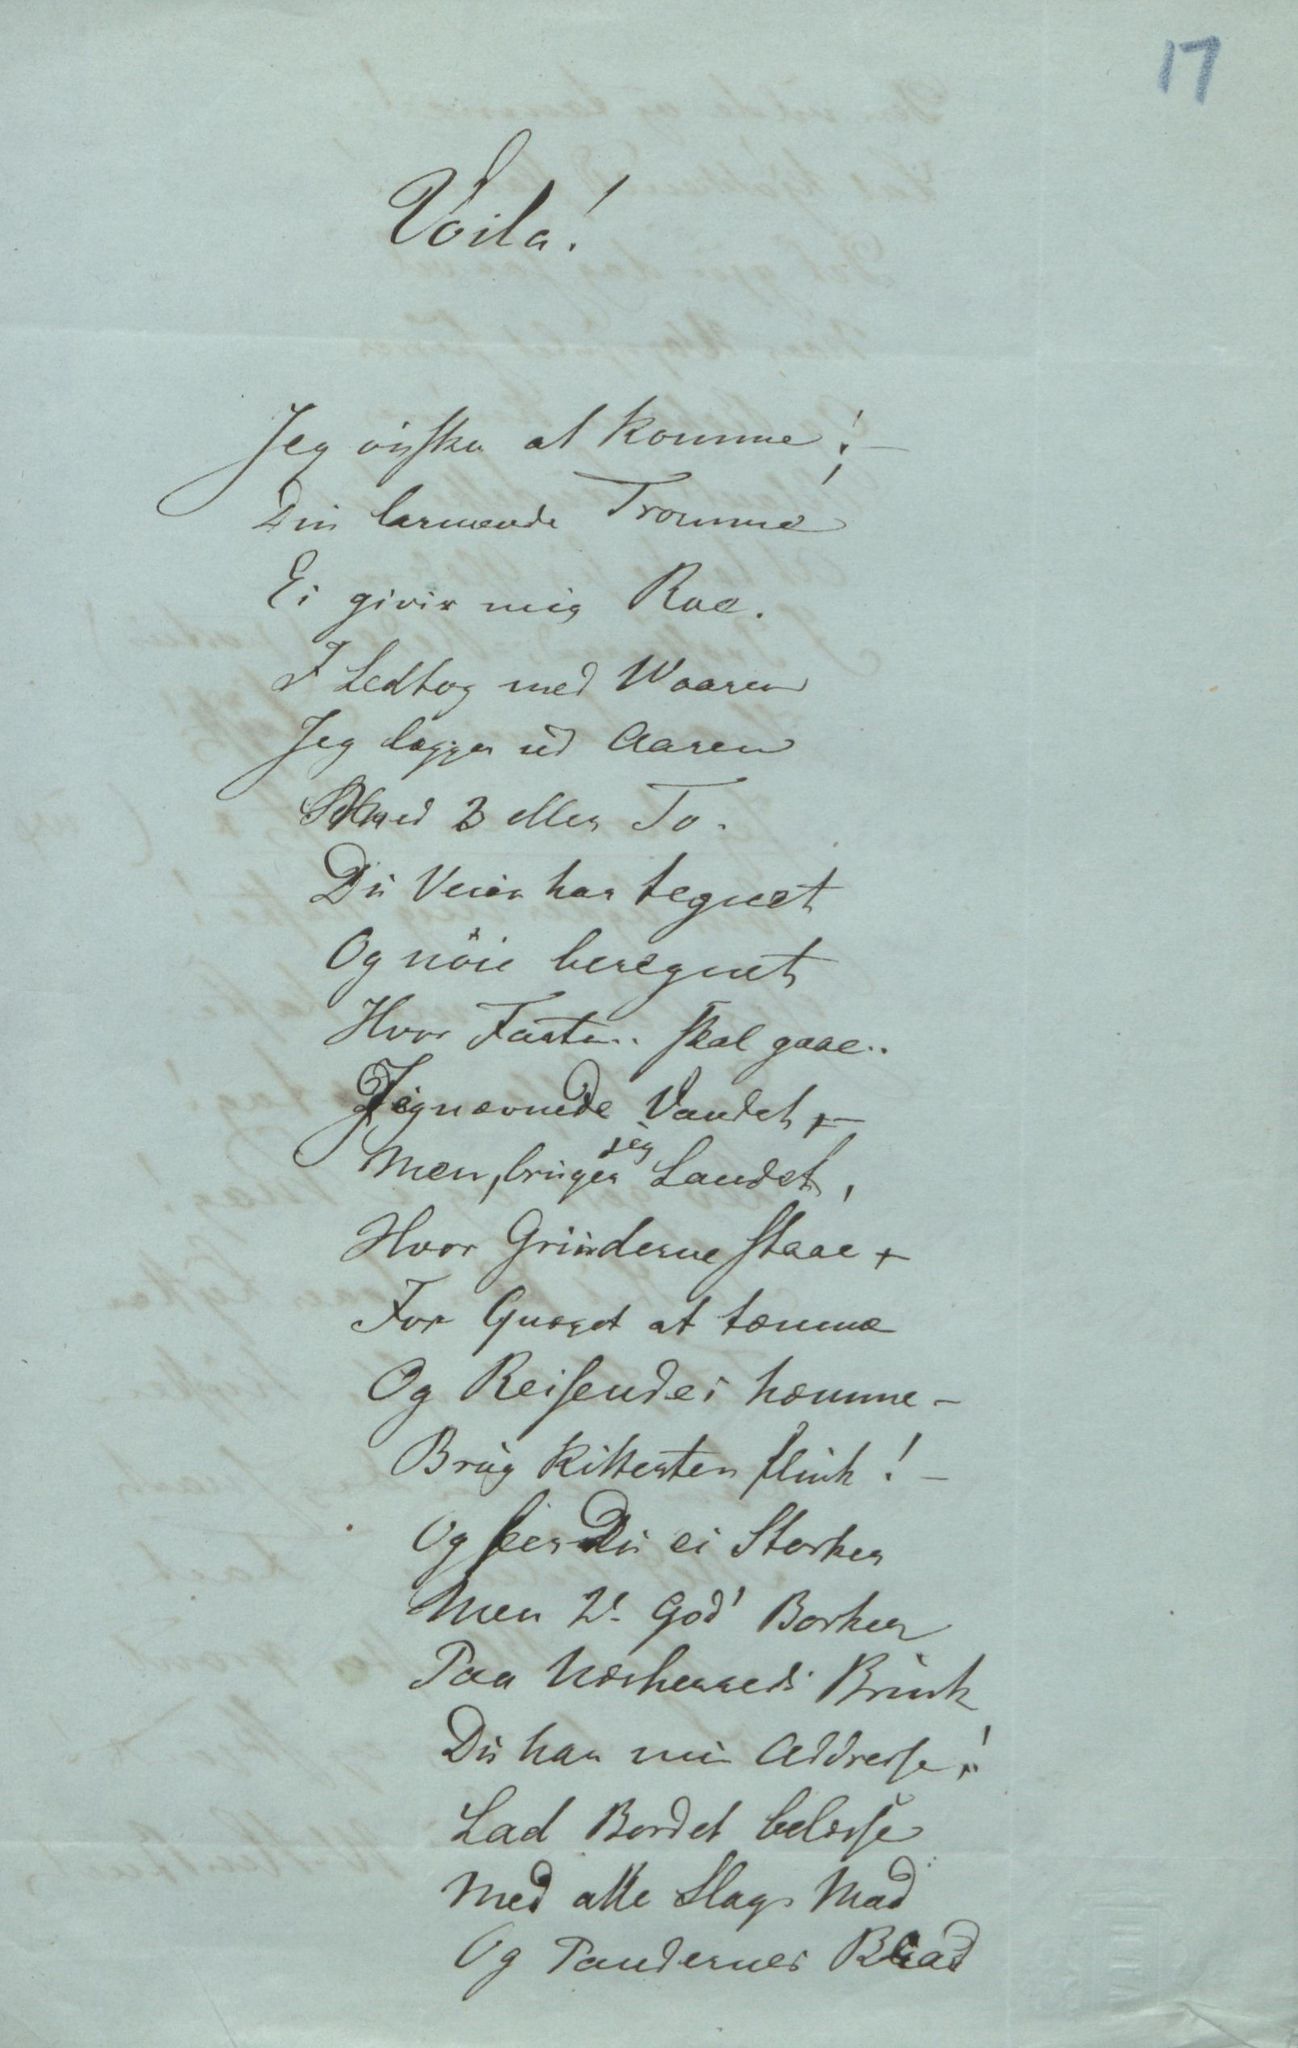 17
Voila!
Jeg ønsker at komme! –
Din larmende Tromme
Ei giver mig Roe.
I Ledtog med Waaren
Jeg lægger ud Aaren
Med 3 eller To.
Du Veien har tegnet
Og nöie beregnet
Hvor Farten skal gaae..
Jeg nævnede Vandet, –
Men, bruger jeg Landet,
Hvor Grinderne staae
For Qvæget at tæmme
Og Reisendes hæmme –
Brug Kikkerten flink! –
Og seer Du ei Storker
Men 2 God' Borker
Paa Brink
Du har min Addresse!
Lad Bordet belæsse
Med alle Slags Mad
Og Pandernes Blad